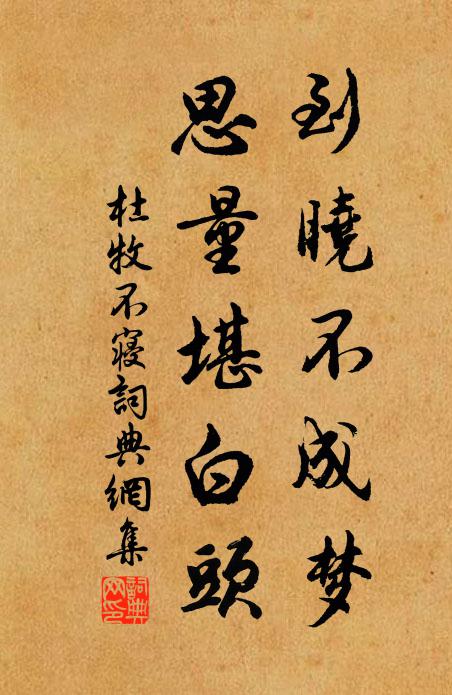 到曉不成梦
思量堪白頭
杜牧不寝詞典網集
詞典网印